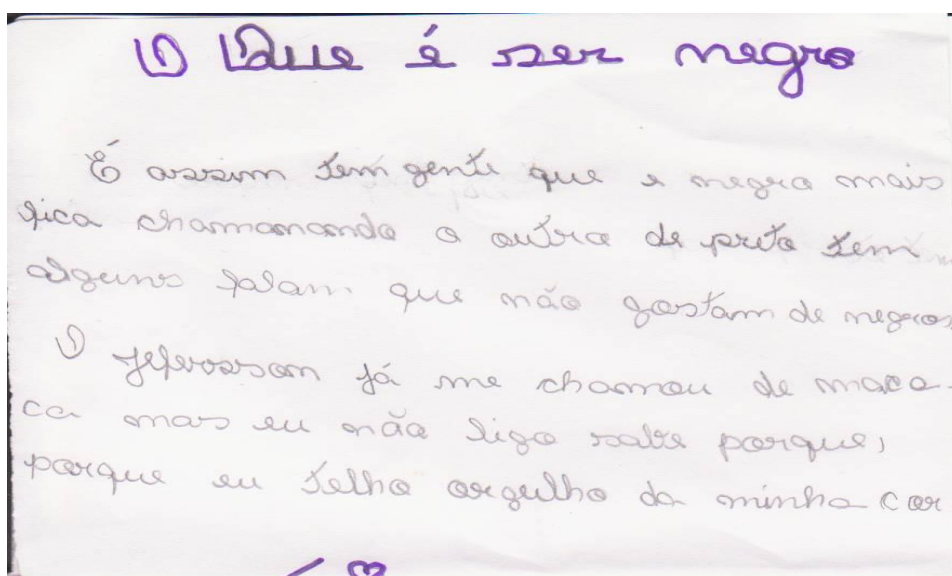 O Que é ser negro
É assim tem gente que e negra mais
fica chamanando o outro de preto tem
alguns falam que não gostam de negros
O Jeferssom já me chamou de maca-
ca mas eu não ligo sabe porque,
porque eu telho orgulho da minha cor